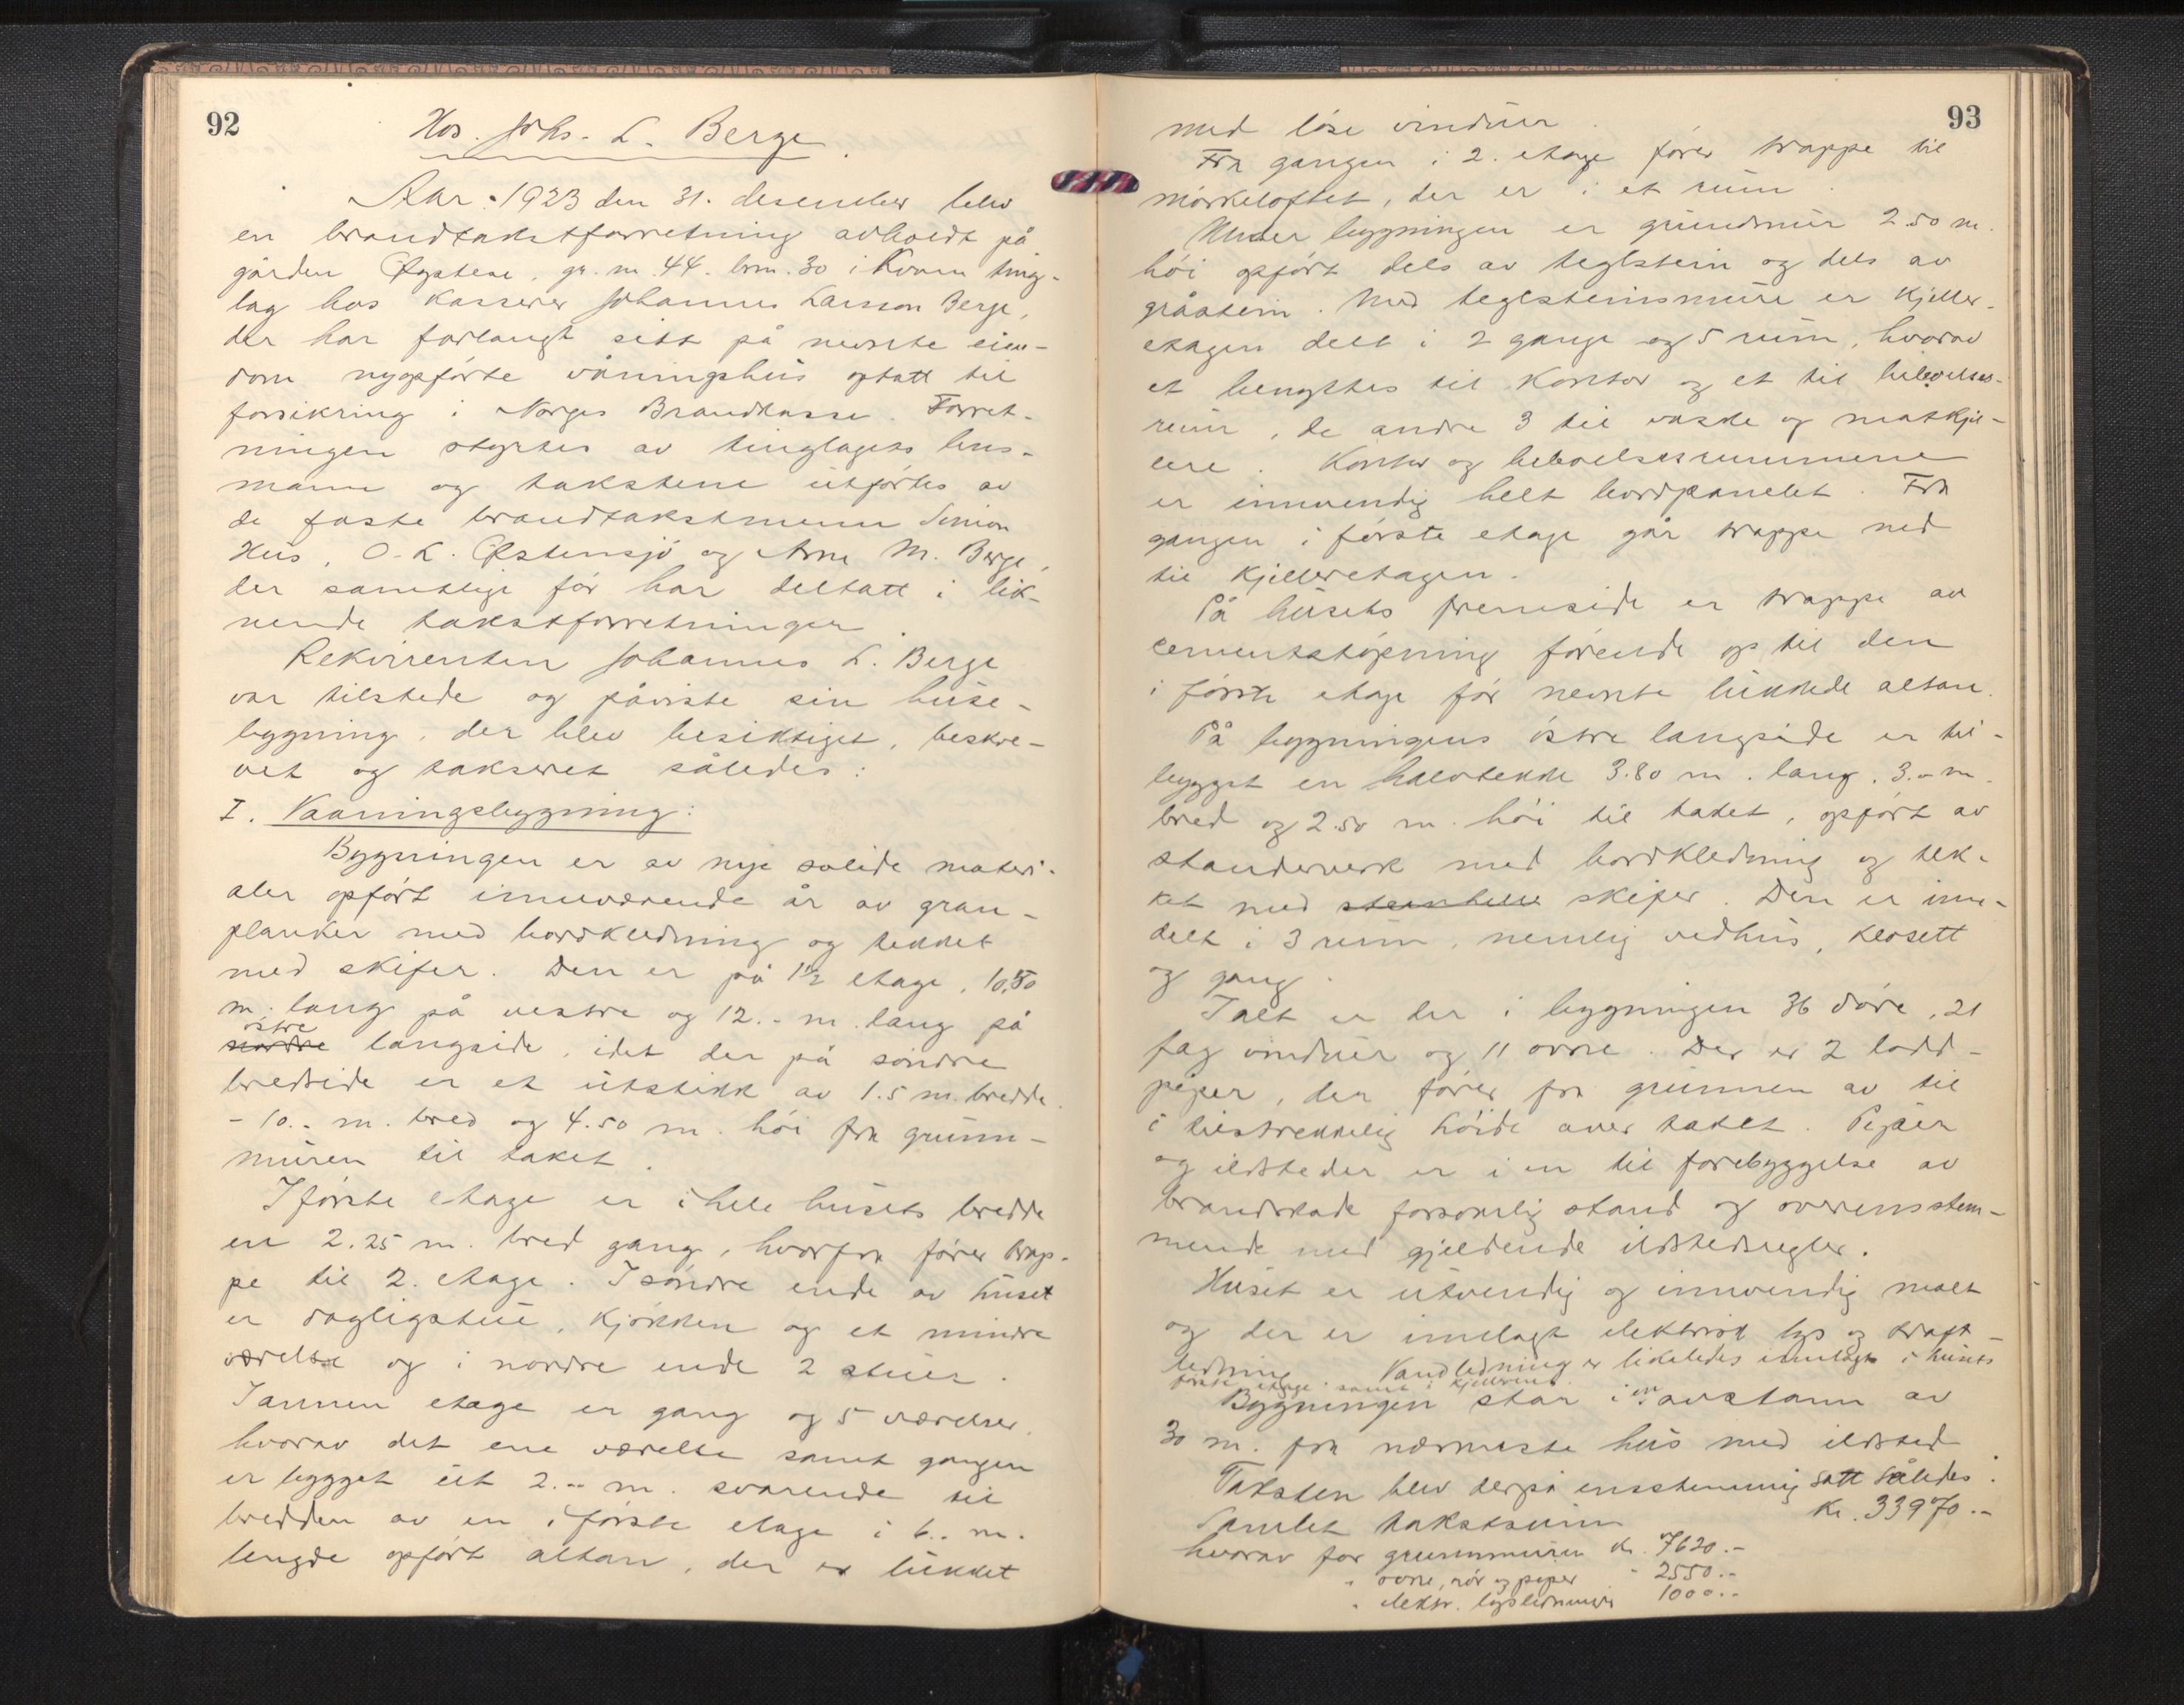 92
Hos. Johs. L. Berge.
Aar 1923 den 31. desember blev
en brandtakstforretning avholdt på
gården Øystese, gr. nr. 44. brnr. 30 i Kvam ting-
lag hos kasserer Johannes Larsson Berge,
der har forlangt sitt på nevnte eien-
dom nyopførte våningshus optatt til
forsikring i Norges Brandkasse. Forret-
ningen styrtes av tinglagets lens-
mann og takstene utførtes av
de faste brandtakstmenn Simon
Hus, O. K. Østensjø og Arne M. Berge,
der samtlige før har deltatt i lik-
nende takstforretninger.
Rekvirenten Johannes L. Berge
var tilstede og påviste sin huse-
bygning, der blev besiktiget, beskre-
vet og taksert således:
I. Vaaningsbygning:
Bygningen er av nye solide materi-
aler opført inneværende år av gran-
planker med bordkledning og tekket
med skifer. Den er på 1½ etage, 10.50
m. lang på vestre og 12.- m. lang på
østre
nordre langside, idet der på søndre
bredside er et utstikk av 1.5 m. bredde
- 10.- m. bred og 4.50 m. høi fra grunn-
muren til taket.
I første etage er i hele husets bredde
en 2.25 m. bred gang, hvorfra fører trap-
pe til 2. etage. I søndre ende av huset
er dagligstue, kjøkken og et mindre
værelse og i nordre ende 2 stuer.
I annen etage er gang og 5 værelser,
hvorav det ene værelse samt gangen
er bygget ut 2.- m. svarende til
bredden av en i første etage i 6.- m.
lengde opført altan, der er lukket
93
med løse vinduer.
Fra gangen i 2. etage fører trappe til
mørkeloftet, der er i et rum.
Under bygningen er grundmur 2.50 m.
høi opført dels av teglstein og dels av
gråstein. Med teglsteinsmure er kjeller-
etagen delt i 2 gange og 5 rum, hvorav
et benyttes til kontor og et til beboelses-
rum, de andre 3 til vaske og matkjel-
lere. Kontor og beboelsesrummene
er innvendig helt bordpanelet. Fra
gangen i første etage går trappe ned
til kjelleretagen.
På husets fremside er trappe av
cementstøpning førende op til den
i første etage før nevnte lukkede altan.
På bygningens østre langside er til-
bygget en halvtekke 3.80 m. lang, 3.- m.
bred og 2.50 m. høi til taket, opført av
standerverk med bordkledning og tek-
ket med steinhelle skifer. Den er inn-
delt i 3 rum, nemlig vedhus, klosett
og gang.
I alt er der i bygningen 36 døre, 21
fag vinduer og 11 ovne. Der er 2 lodd-
piper, der fører fra grunnen av til
i tilstrekkelig høide over taket. Piper
og ildsteder er i en til forebyggelse av
brandskade forsvarlig stand og overensstem-
mende med gjeldende ildstedsregler.
Huset er utvendig og innvendig malt
og der er innlagt elektrisk lys og kraft-
ledning. Vandledning er likeledes innlagt i husets
første etage samt i kjelleren.
Bygningen står i en avstann av
30 m. fra nærmeste hus med ildsted.
Taksten blev derpå enstemmig satt således:
Samlet takstsum Kr. 33970.-
hvorav for grunnmuren kr. 7620.-
" ovne, rør og piper " 2550.-
" elektr. lysledninger 1000.-